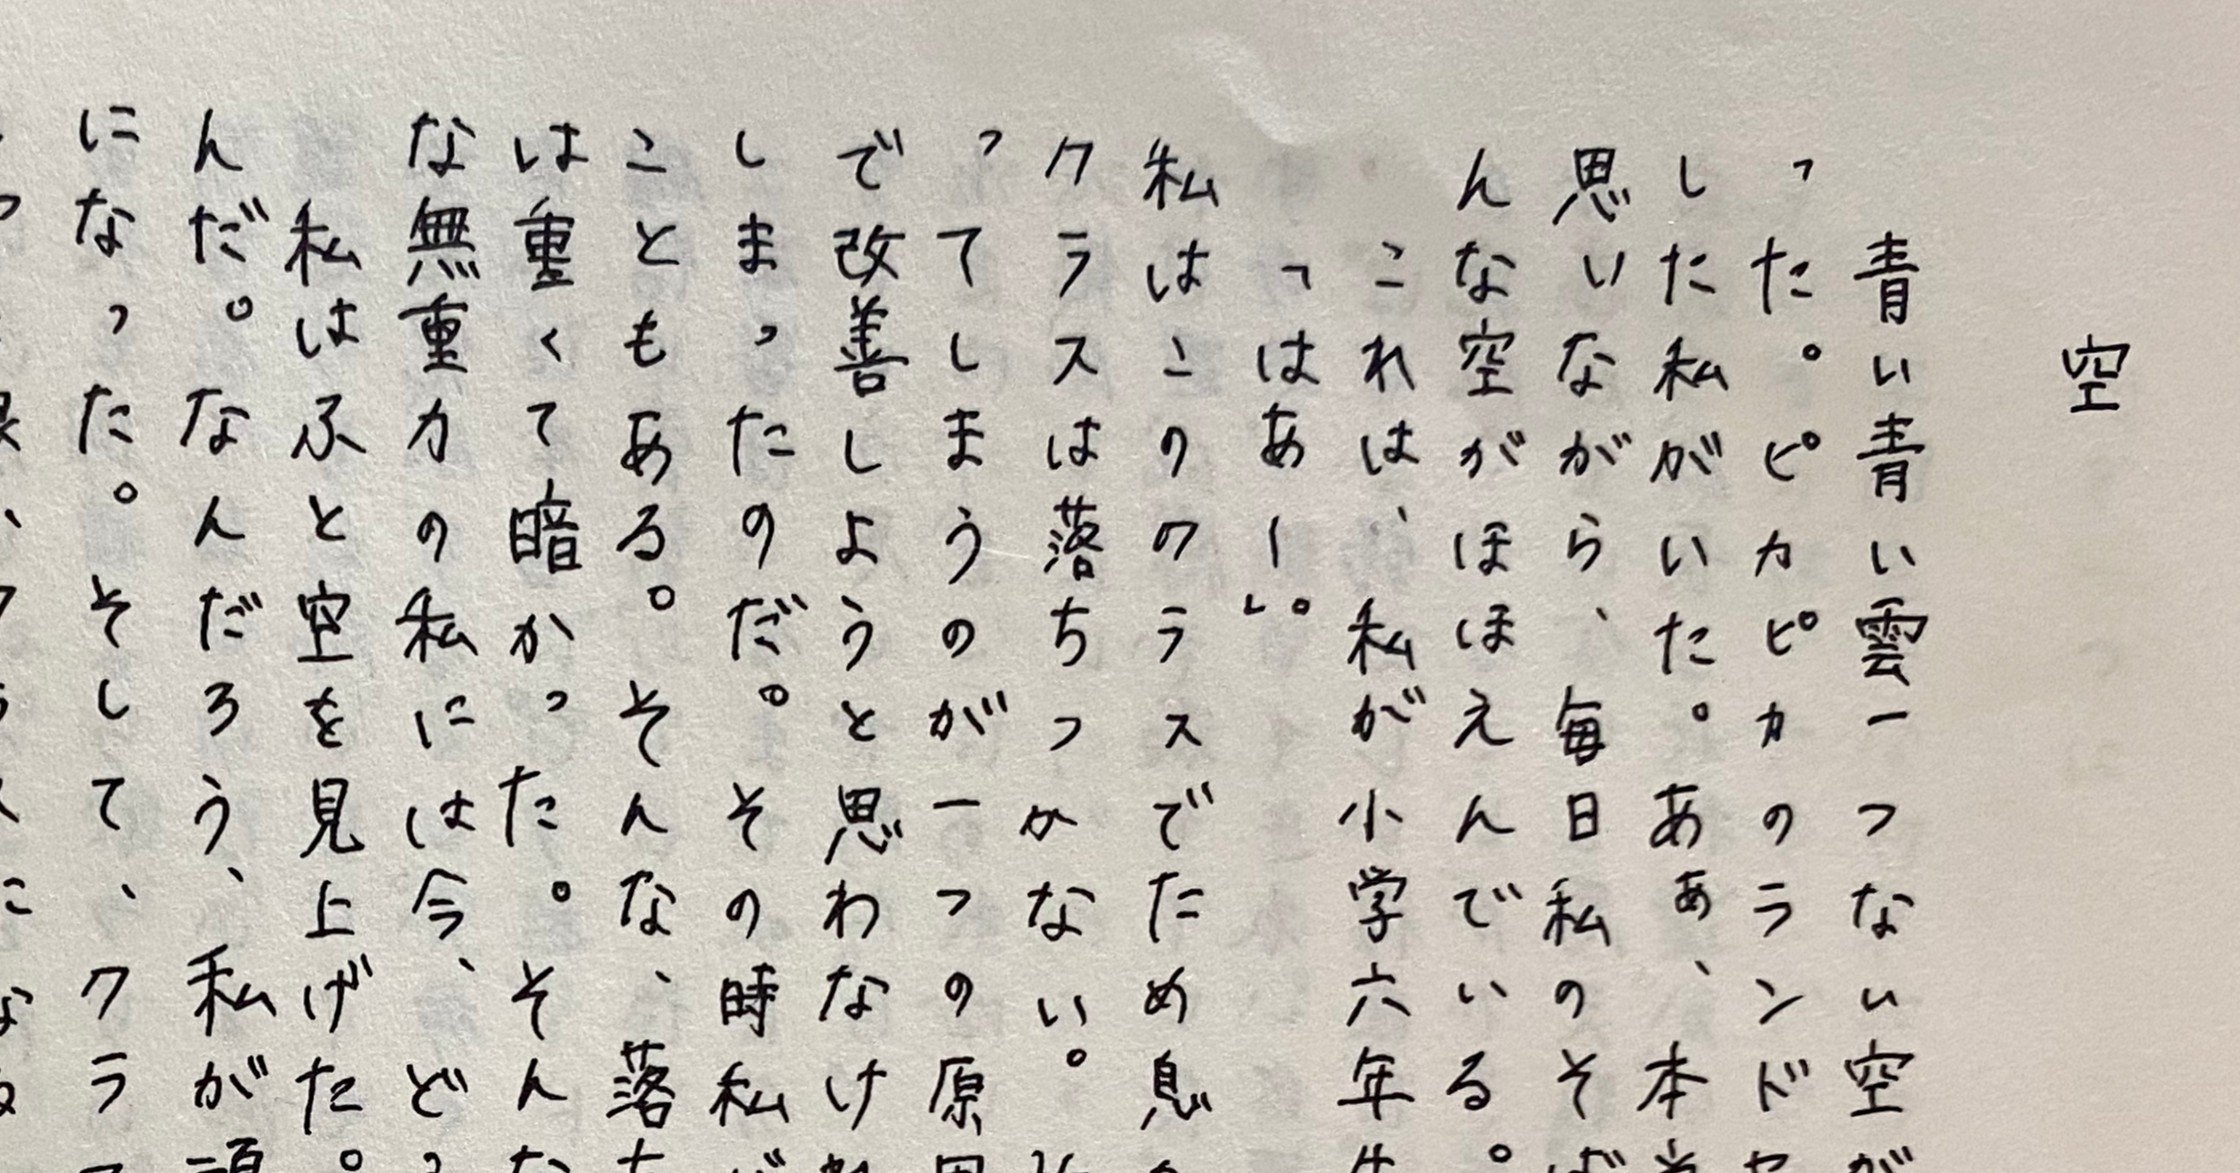 空
青い青い雲一つない空が
った。ピカピカのランド
した私がいた。ああ、本
思いながら、毎日私のそば
んな空がほほえんでいる。
これは、私が小学六年生
「はあー」。
私はこのクラスでため息
クラスは落ちつかない。
ってしまうのが一つの原因
で改善しようと思わなけれ
しまったのだ。その時私が
こともある。そんな、落ち
は重くて暗かった。そんな
な無重力の私には今、ど
私はふと空を見上げた。
んだ。なんだろう、私が頭
になった。そして、クラ